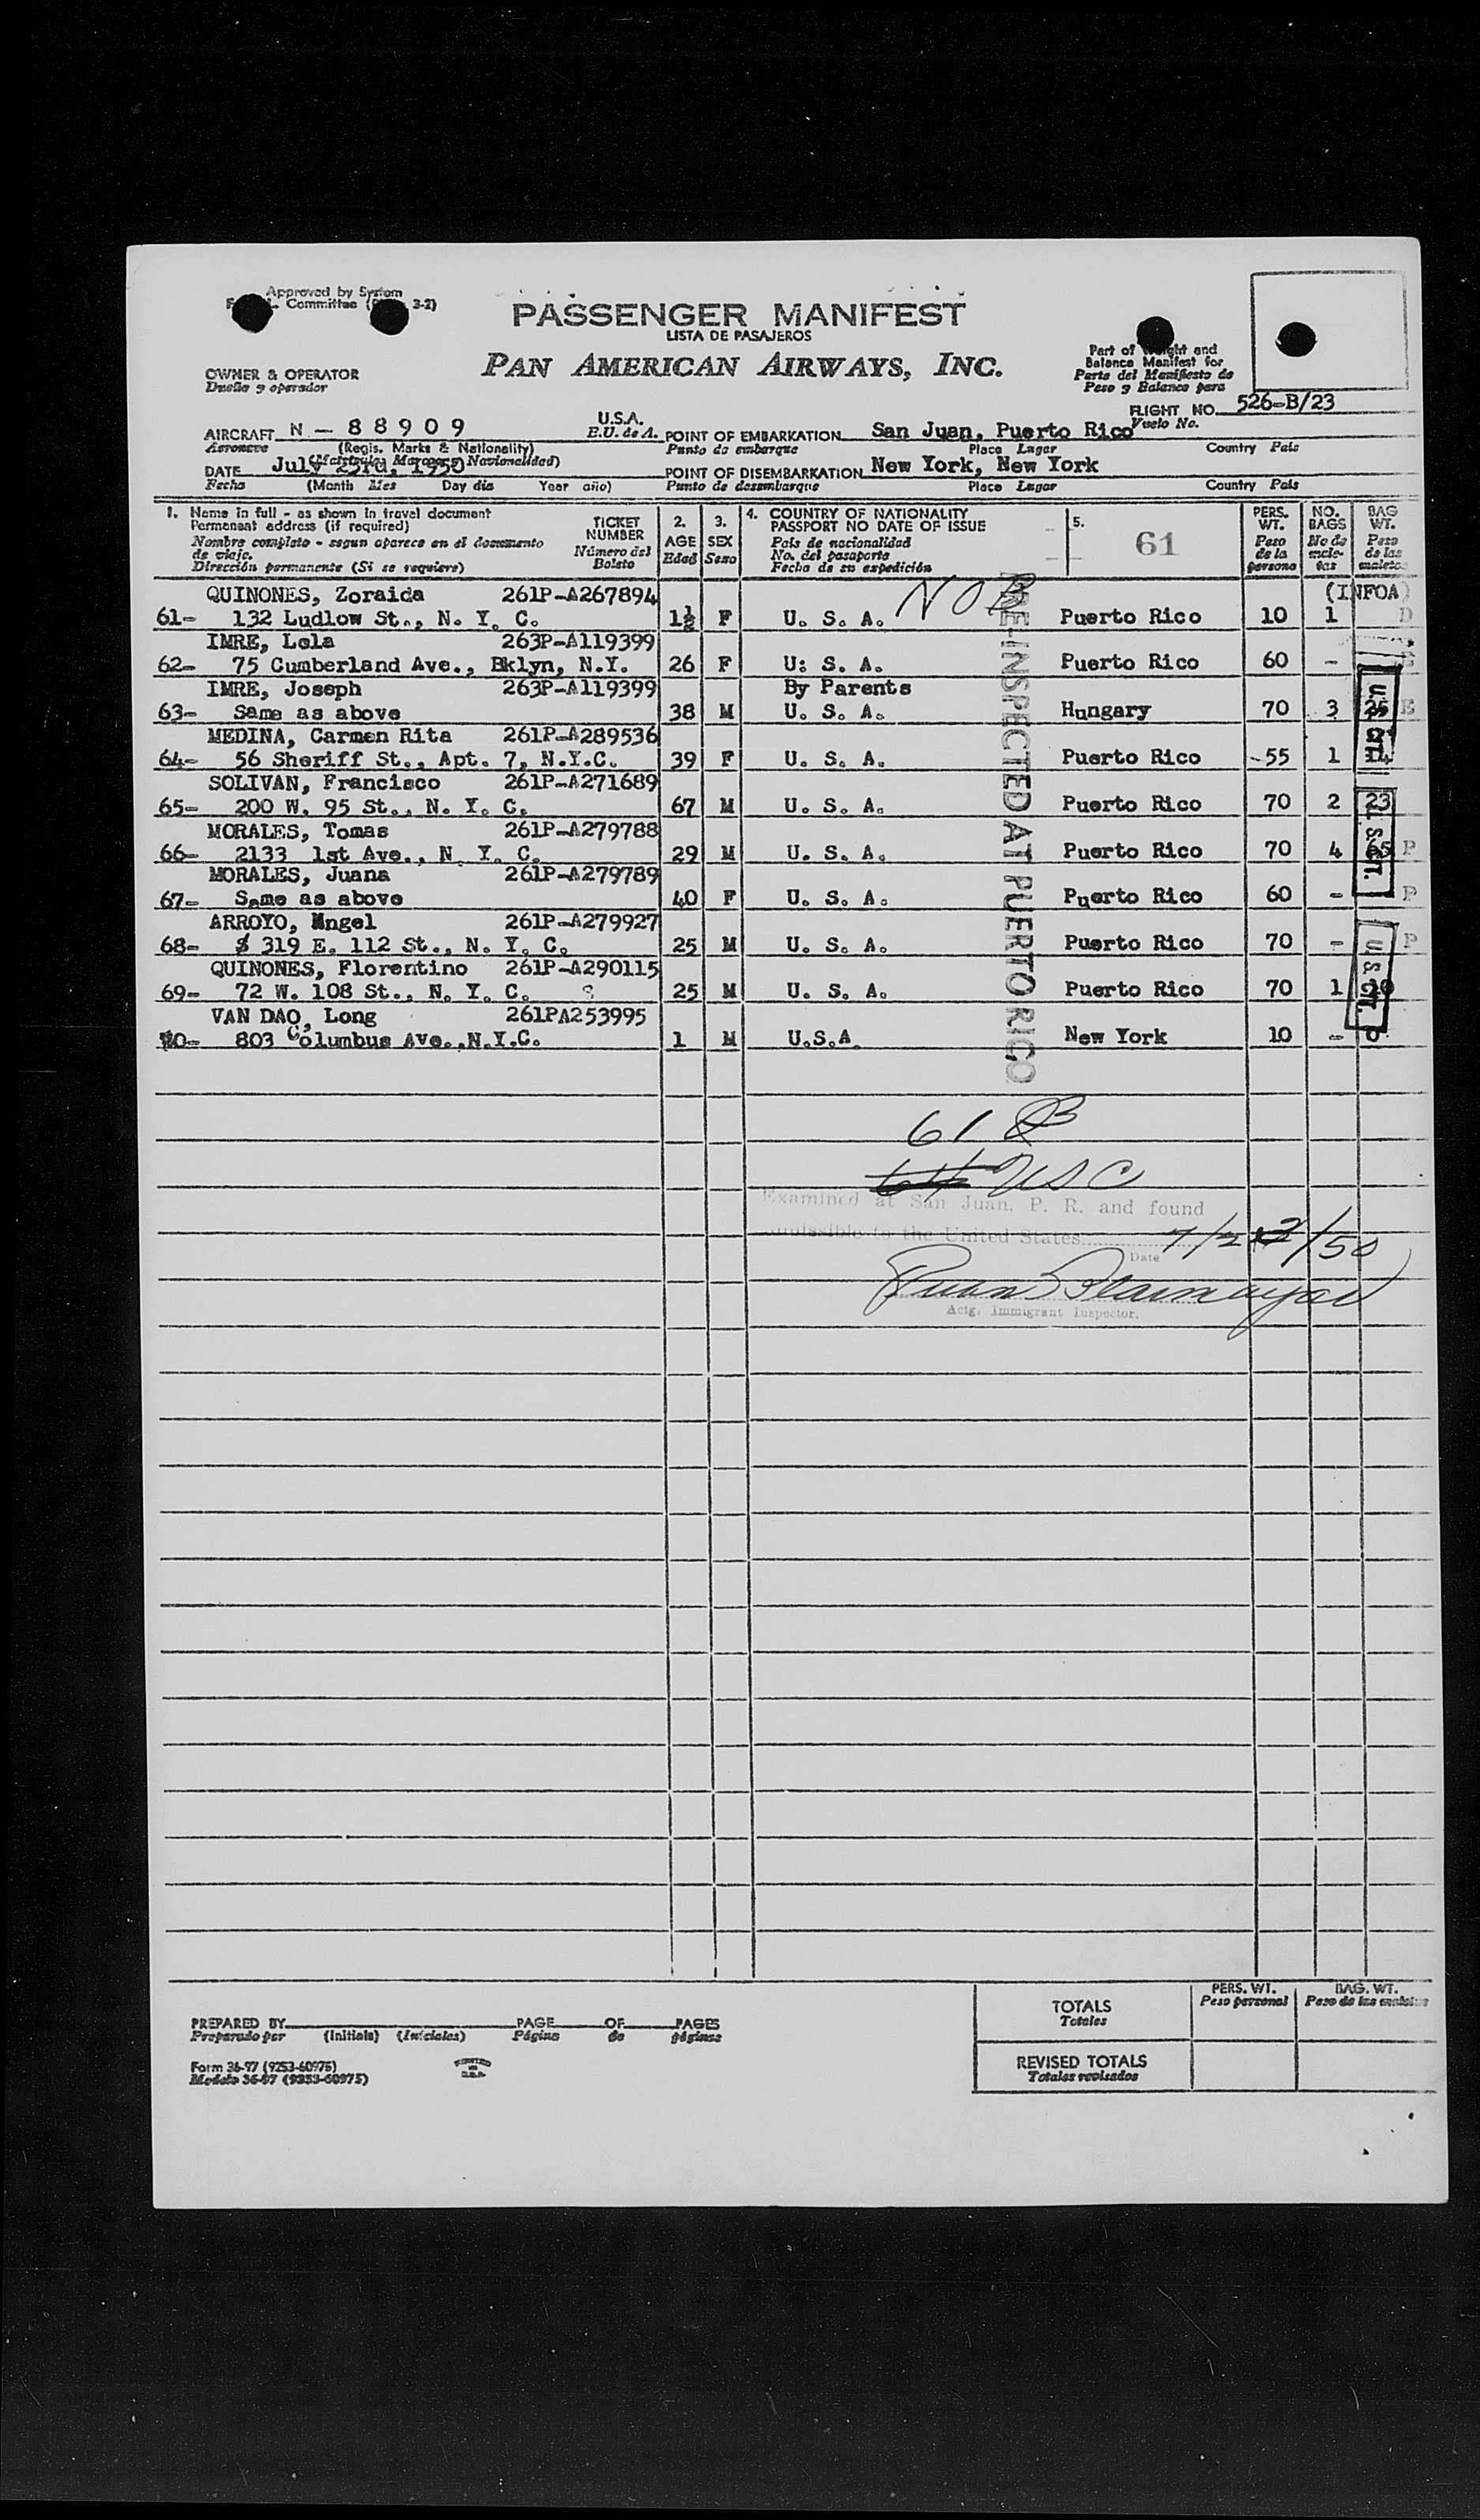 Approved by System
Committee 3-2)
PASSENGER MANIFEST
LISTA DE PASAJEROS
PAN AMERICAN AIRWAYS, INC.
OWNER & OPERATOR
Dueño y operador
Part of Weight and
Balance Manifest for
Parte del Manifiesto de
Peso y Balance para
FLIGHT NO. 526-B/23
Vuelo No.
AIRCRAFT N - 88909 U.S.A.
Aeronave (Regis. Marks & Nationality) E.U. de A.
POINT OF EMBARKATION San Juan, Puerto Rico
Punto de embarque Place Lugar Country País
DATE July 23rd, 1950
Fecha (Month Mes Day día Year año)
POINT OF DISEMBARKATION New York, New York
Punto de desembarque Place Lugar Country País
1. Name in full - as shown in travel document
Permanent address (if required)
Nombre completo - segun aparece en el documento
de viaje.
Dirección permanente (Si se requiere)
TICKET
NUMBER
Número del
Boleto
2.
AGE
Edad
3.
SEX
Sexo
4. COUNTRY OF NATIONALITY
PASSPORT NO DATE OF ISSUE
País de nacionalidad
No. del pasaporte
Fecha de su expedición
5. 61
PERS.
WT.
Peso
de la
persona
NO.
BAGS
No de
male-
tas
BAG
WT.
Peso
de las
maletas
QUINONES, Zoraida 261P-A267894 NOB (INFOA)
61- 132 Ludlow St., N. Y. C. 1½ F U. S. A. Puerto Rico 10 1 D
IMRE, Lola 263P-A119399
62- 75 Cumberland Ave., Bklyn, N.Y. 26 F U: S. A. Puerto Rico 60 -
IMRE, Joseph 263P-A119399 By Parents
63- Same as above 38 M U. S. A. Hungary 70 3 25 E
MEDINA, Carmen Rita 261P-A289536
64- 56 Sheriff St., Apt. 7, N.Y.C. 39 F U. S. A. Puerto Rico 55 1
SOLIVAN, Francisco 261P-A271689
65- 200 W. 95 St., N. Y. C. 67 M U. S. A. Puerto Rico 70 2 23
MORALES, Tomas 261P-A279788
66- 2133 1st Ave., N. Y. C. 29 M U. S. A. Puerto Rico 70 4 65 P
MORALES, Juana 261P-A279789
67- Same as above 40 F U. S. A. Puerto Rico 60 - P
ARROYO, Angel 261P-A279927
68- 319 E. 112 St., N. Y. C. 25 M U. S. A. Puerto Rico 70 - P
QUINONES, Florentino 261P-A290115
69- 72 W. 108 St., N. Y. C. 25 M U. S. A. Puerto Rico 70 1
VAN DAO, Long 261PA253995
70- 803 Columbus Ave.,N.Y.C. 1 M U.S.A. New York 10 - P
PRE-INSPECTED AT PUERTO RICO
61
64 USC
Examined at San Juan, P. R. and found
admissible to the United States 7/22/50
Date
Actg. Immigrant Inspector.
TOTALS
Totales
PERS. WT.
Peso personal
BAG. WT.
Peso de las maletas
REVISED TOTALS
Totales revisados
PREPARED BY PAGE OF PAGES
Preparado por (Initials) (Iniciales) Página de páginas
Form 36-97 (9253-60975)
Modelo 36-97 (9253-60975)
PRINTED
IN
U.S.A.